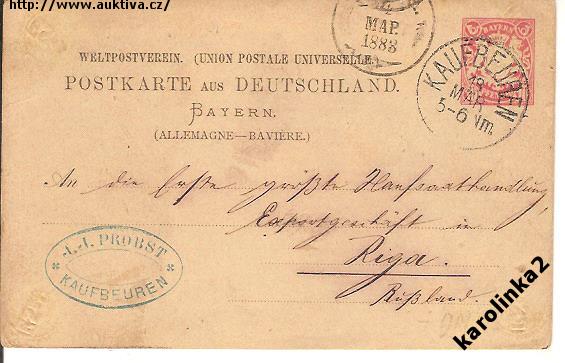 http://www.auktiva.cz/
14
МАР.
1883
BAYERN
WELTPOSTVEREIN. (UNION POSTALE UNIVERSELLE.)
POSTKARTE AUS DEUTSCHLAND.
BAYERN.
(ALLEMAGNE—BAVIÈRE.)
KAUFBEUREN
19
MAR
5-6 Nm.
An die Erste größte Hanfsaathandlung,
Exportgeschäft in
Riga.
Rußland.
J. PROBST
KAUFBEUREN
karolinka2